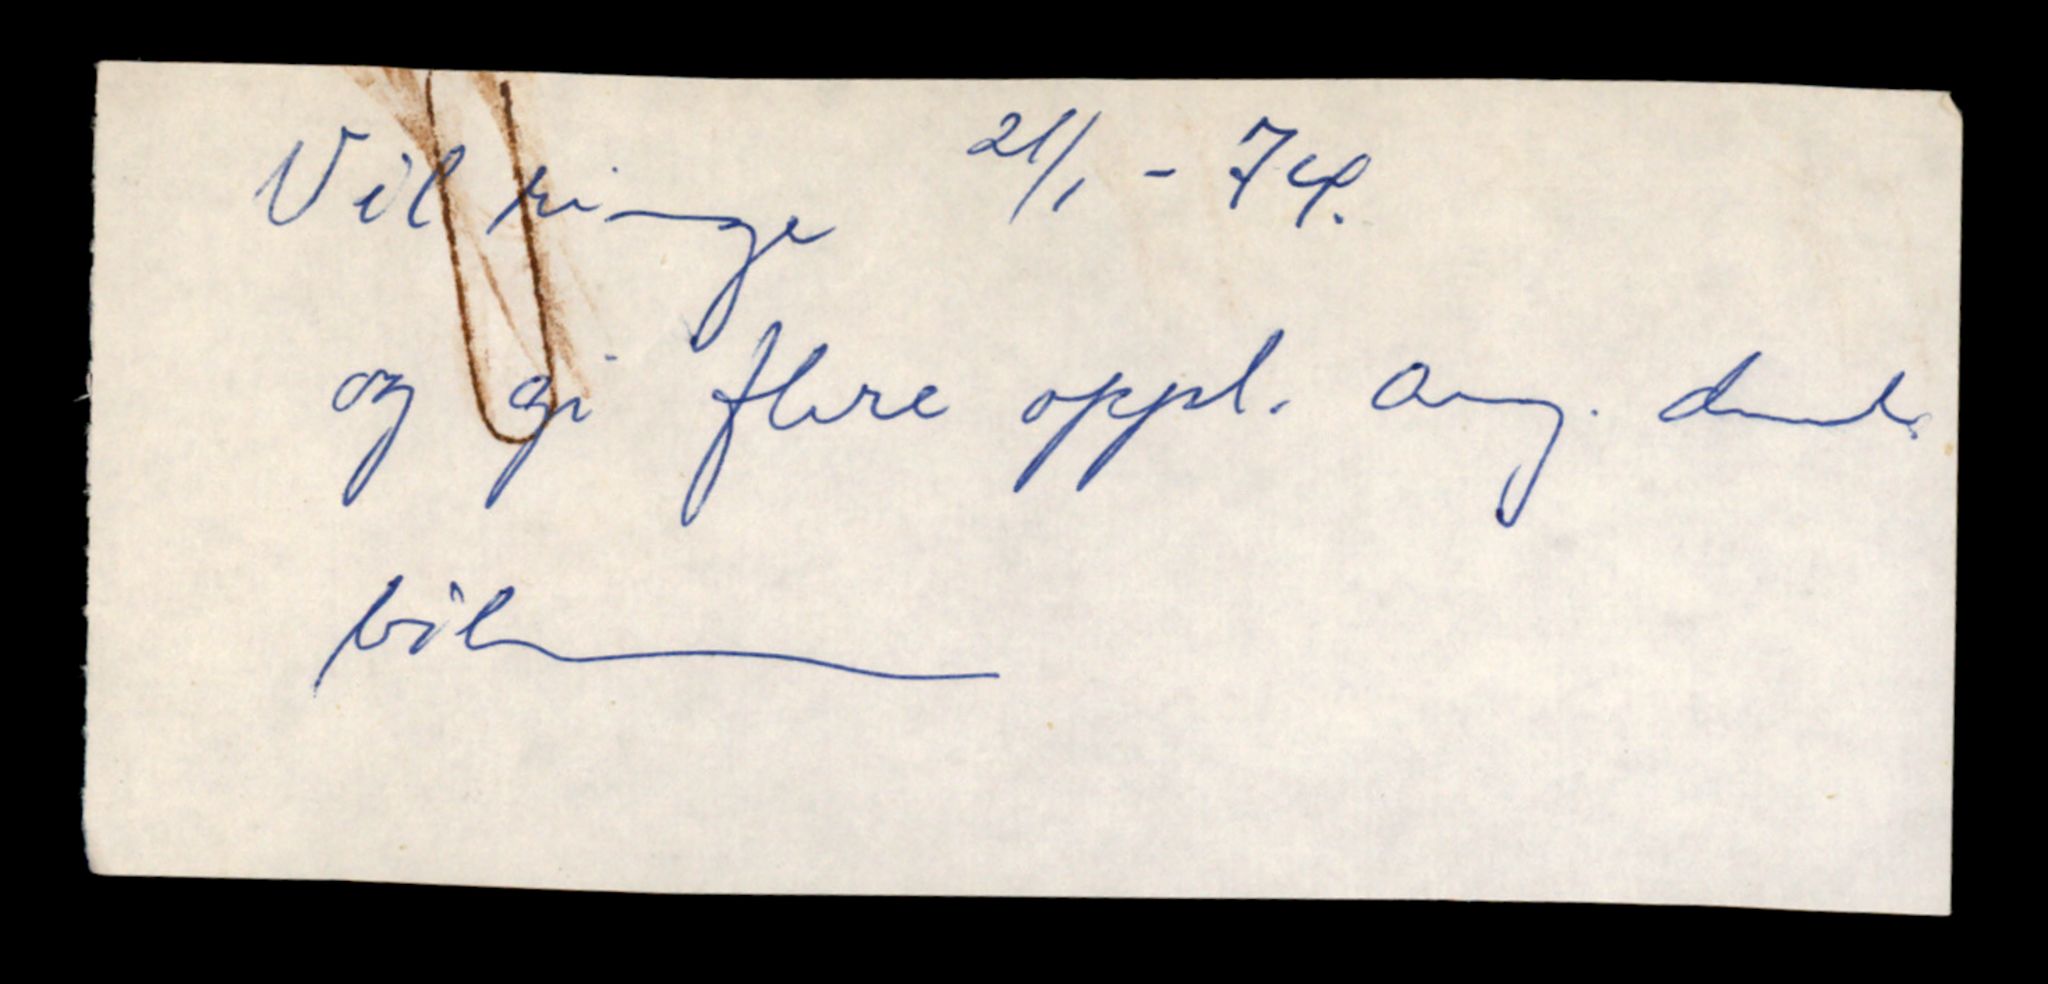 Vil ringe 21/1 - 74.
og gi flere oppl. ang. denne
bilen